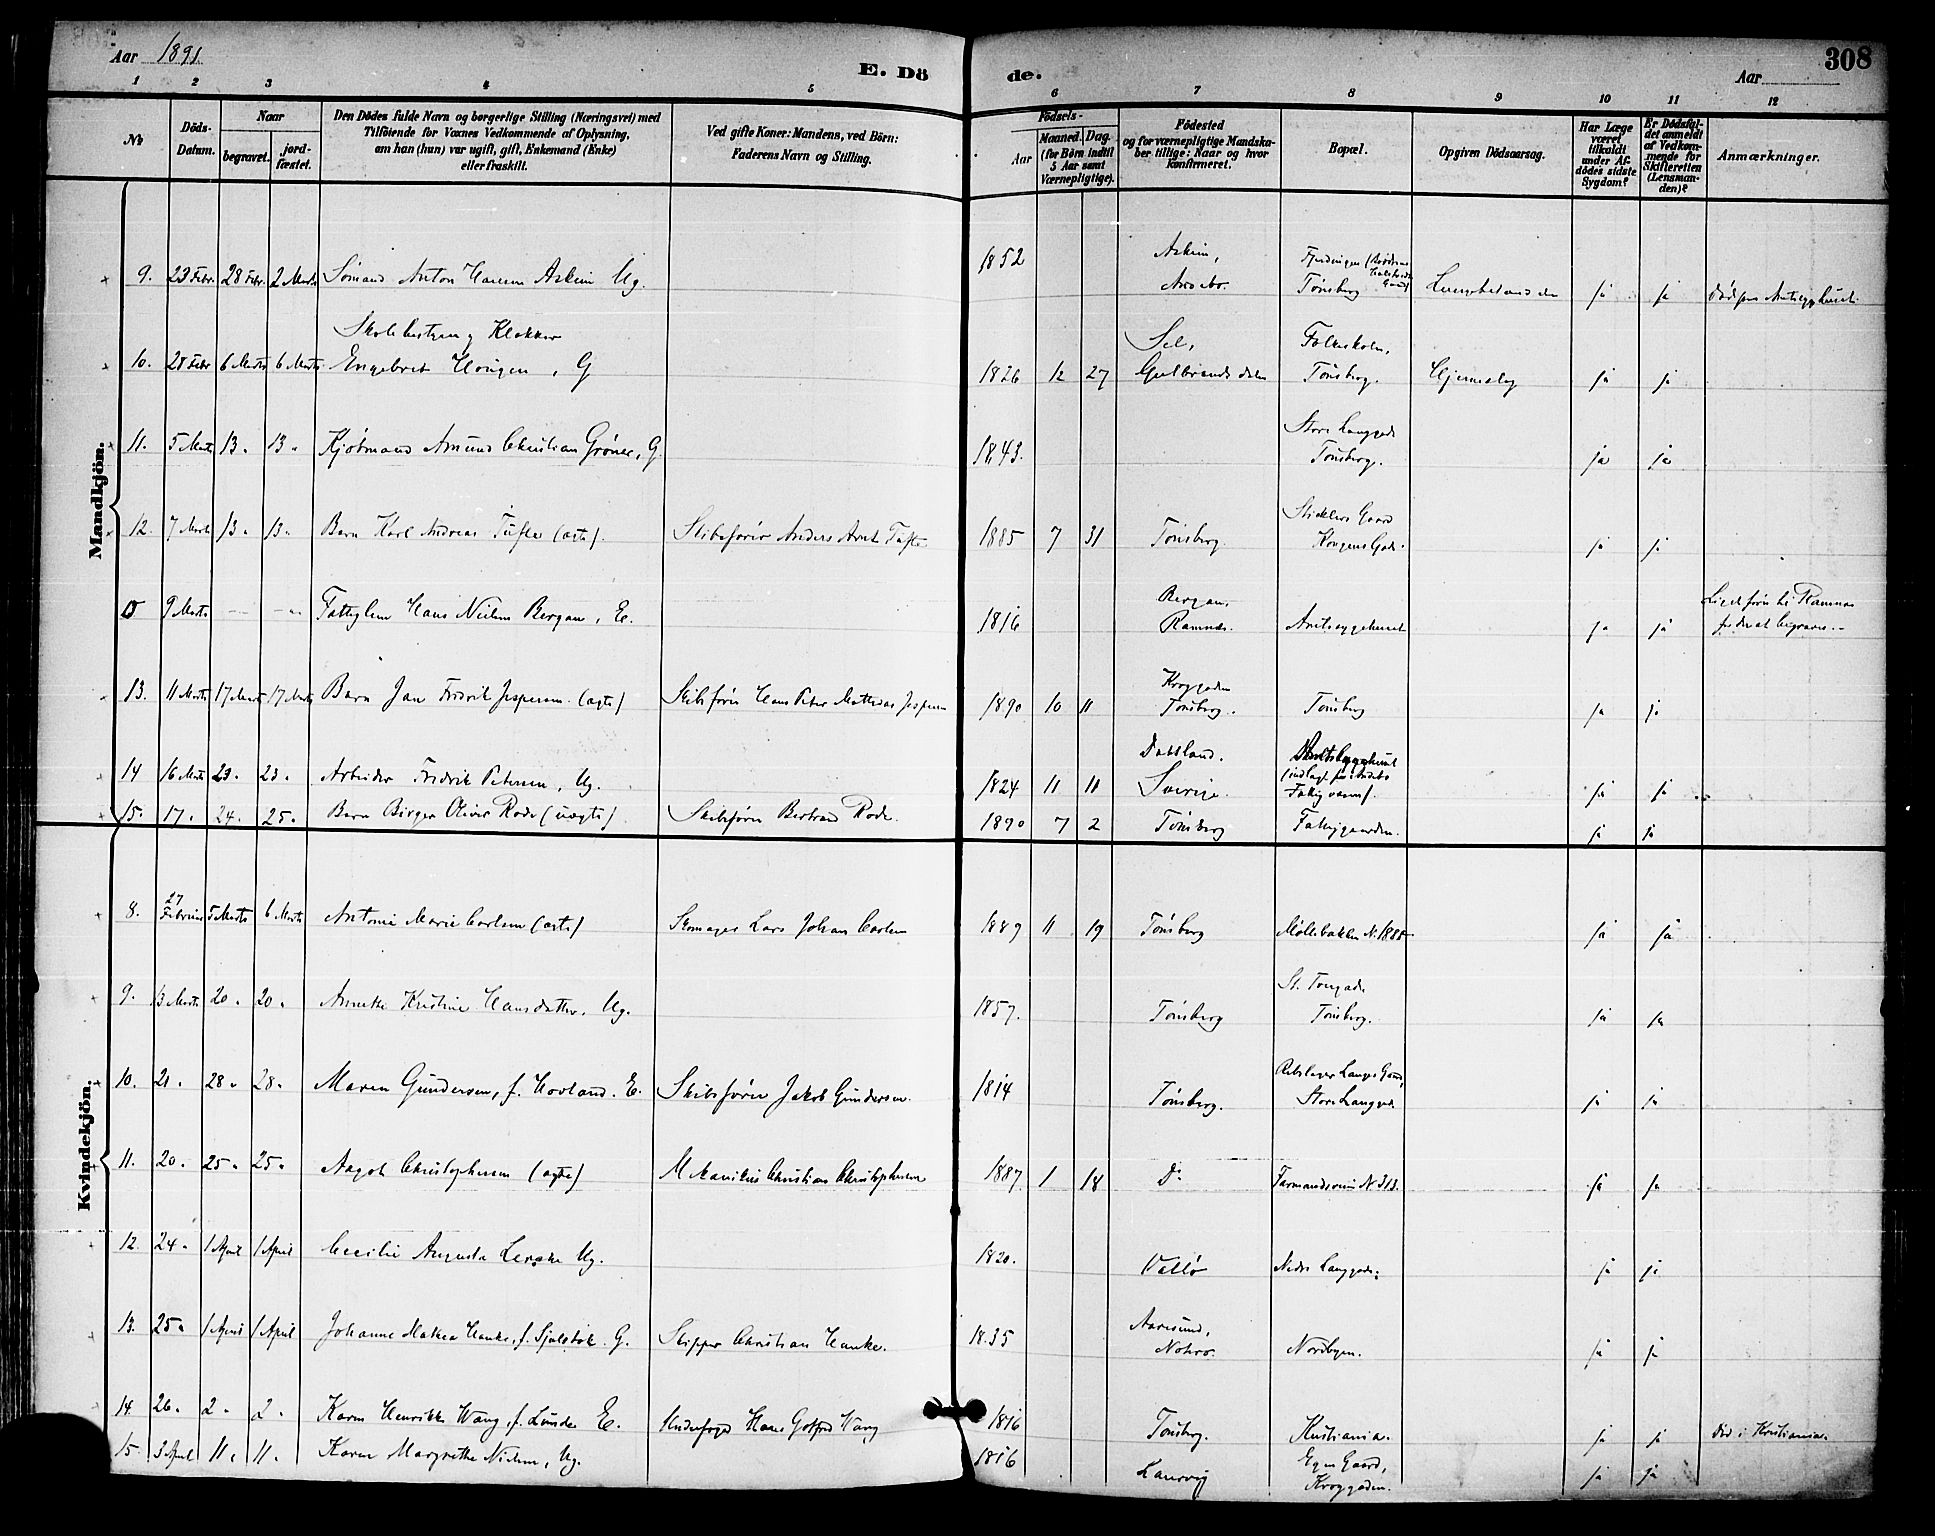 Aar 1891
E. Dö
de.
Aar
308
1 2 3 4 5 6 7 8 9 10 11 12
No
Döds-Datum.
Naar
begravet.
jord-fæstet.
Den Dödes fulde Navn og borgerlige Stilling (Næringsvei) med
Tilföiende for Voxnes Vedkommende af Oplysning,
om han (hun) var ugift, gift, Enkemand (Enke)
eller fraskilt.
Ved gifte Koner: Mandens, ved Börn:
Faderens Navn og Stilling.
Födsels-
Aar
Maaned. Dag.
(for Börn indtil
5 Aar samt
Værnepligtige).
Födested
og for værnepligtige Mandska-
ber tillige: Naar og hvor
konfirmeret.
Bopæl.
Opgiven Dödsaarsag.
Har Læge
været
tilkaldt
under Af-
dödes sidste
Sygdom?
Er Dödsfal-
det anmeldt
af Vedkom-
mende for
Skifteretten
(Lensman-
den)?
Anmærkninger.
Mandkjön.
9. 23 Febr. 28 Febr. 2 Marts Sømand Anton Hansen Askim Ug. 1852 Askim, Tønsberg ja ja
Skolebestyrer og Klokker
10. 28 Febr 6 Marts 6 Marts Engebret Hougen, G 1826 12 27 Sel, Gulbrandsdalen Folkeskolen, Tønsberg. ja ja
11. 5 Marts 13. 13. Kjøbmand Amund Christian Grøner, G. 1843. Store Langgade Tønsberg. ja ja
12. 7 Marts 13. 13. Barn Karl Andreas Tufte (ægte). Skibsfører Anders Tufte 1885 7 31 Tønsberg. Gaard Kongens Gade. ja ja
0 9 Marts — — Hans Nielsen Bergan, E. 1816 Bergan, Ramnes. Amtsygehuset ja ja Ramnes
13. 11 Marts 17 Marts 17 Marts Barn Jan Fredrik Jespersen (ægte) Skibsfører Hans Peter Mathias Jespersen 1890 10 11 Tønsberg. Tønsberg ja ja
14 16 Marts 23. 23. Arbeider Fredrik Petersen, Ug. 1824 11 11 Dalsland. Sverige. ja ja
15. 17. 24. 25. Barn Birger Oliver Rode (uægte) Skibsfører Bertrand Rode. 1890 7 2 Tønsberg Fattiggaarden. ja ja
Kvindekjön.
8. 27 Februar 5 Marts 6 Marts Antonie Marie Carlsen (ægte) Skomager Lars Johan Carlsen 1889 11 19 Tønsberg Møllebakken ja ja
9. 13 Marts 20. 20. Annette Kristine Hansdatter. Ug. 1857. Tønsberg Tønsberg. ja ja
10. 21. 28. 28. Maren Gundersen, f. Hovland. E. Skibsfører Jakob Gundersen. 1814 Tønsberg. Rebslager Langes Gaard, Store Langgade ja ja
11. 20. 25. 25. Aagot Christophersen (ægte) Christian Christophersen 1887 1 18 Do Farmandsveien N 313. ja ja
12. 24. 1 April 1 April Cecilie Augusta Lerche Ug. 1820. Vallø Nedre Langgade. ja ja
13. 25. 1 April 1 April Johanne Mathea Hanke, G. Skipper Christian Hanke. 1835 Aarøsund, Nøtterø. Nordbyen. ja ja
14 26. 2. 2. Karen Henrikke Wang, f. Lunde E. Hans Wang 1816 Tønsberg. Kristiania. ja ja død i Kristiania.
15. 3 April 11. 11. Karen Margrethe Nielsen, Ug. 1816 Laurvig Gaard, ja ja